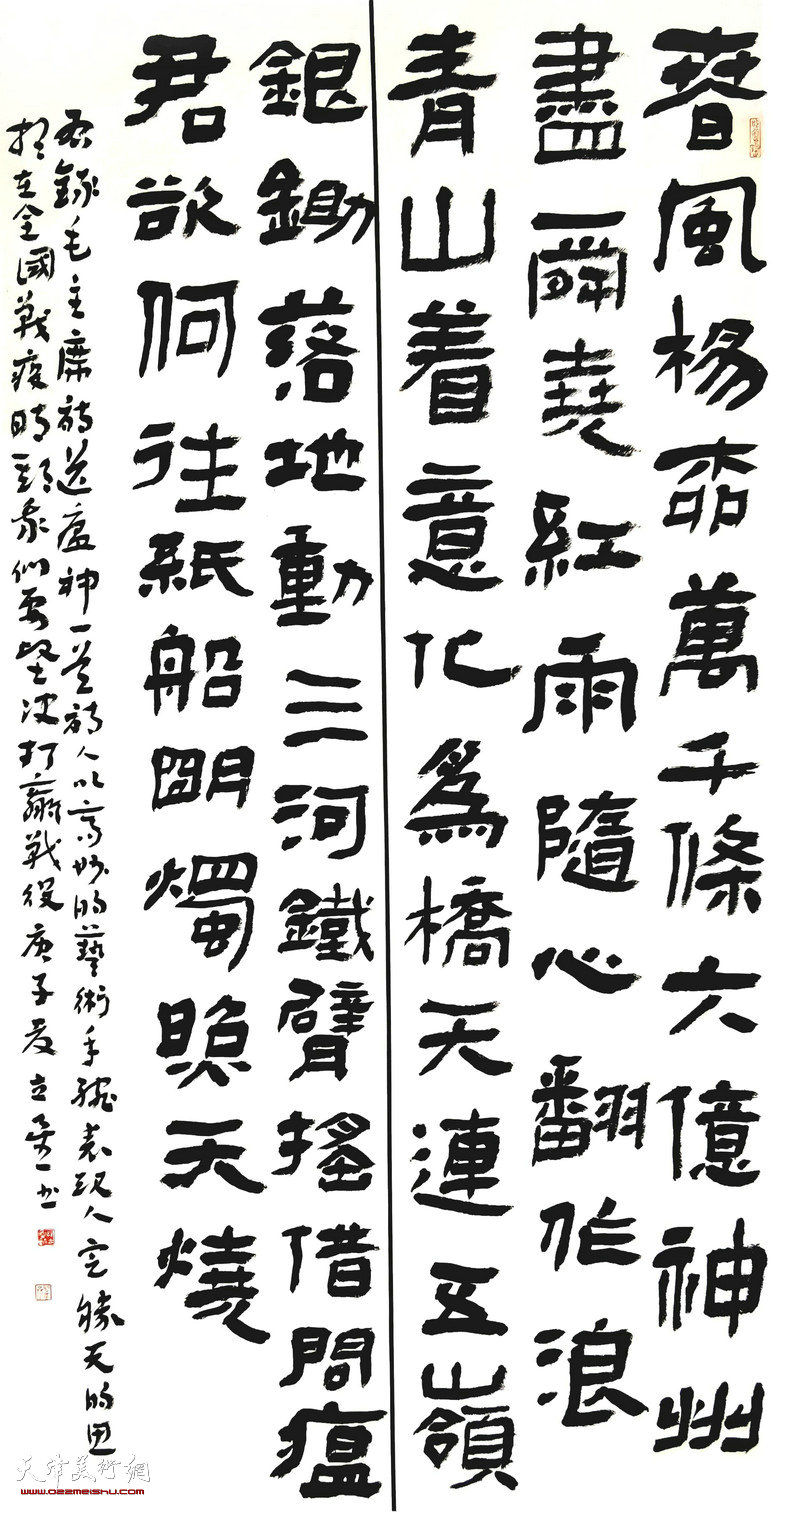 春風楊柳萬千條六億神州
盡舜堯紅雨隨心翻作浪
青山着意化為橋天連五嶺
銀鋤落地動三河鐵臂搖借問瘟
君欲何往紙船明燭照天燒
右錄毛主席詩送瘟神一首詩人以高妙的藝術手腕表現人定勝天的思
想在全國戰疫時我們要堅決打贏戰役庚子夏立書
天津美術網
www.022meishu.com